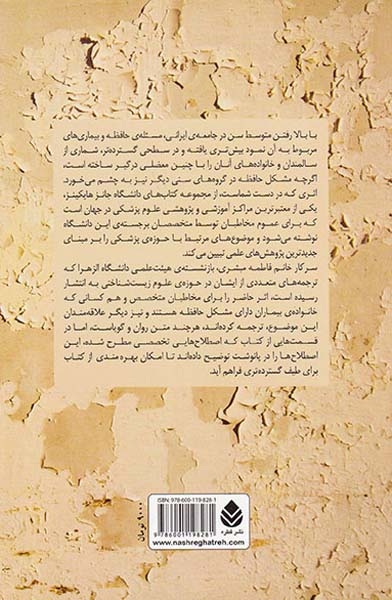 با بالا رفتن متوسط سن در جامعه‌ی ایرانی، مسئله‌ی حافظه و بیماری‌های
مربوط به آن نمود بیش‌تری یافته و در سطحی گسترده‌تر، شماری از
سالمندان و خانواده‌های آنان را با چنین معضلی درگیر ساخته است،
اگرچه مشکل حافظه در گروه‌های سنی دیگر نیز به چشم می‌خورد.
اثری که در دست شماست، از مجموعه کتاب‌های دانشگاه جانز هاپکینز،
یکی از معتبرترین مراکز آموزشی و پژوهشی علوم پزشکی در جهان است
که برای عموم مخاطبان توسط متخصصان برجسته‌ی این دانشگاه
نوشته می‌شود و موضوع‌های مرتبط با حوزه‌ی پزشکی را بر مبنای
جدیدترین پژوهش‌های علمی تبیین می‌کند.
سرکار خانم فاطمه مبشری، بازنشسته‌ی هیئت‌علمی دانشگاه الزهرا که
ترجمه‌های متعددی از ایشان در حوزه‌ی علوم زیست‌شناختی به انتشار
رسیده است، اثر حاضر را برای مخاطبان متخصص و هم کسانی که
خانواده‌ی بیماران دارای مشکل حافظه هستند و نیز دیگر علاقه‌مندان
این موضوع، ترجمه کرده‌اند، هرچند متن روان و گویاست، اما در
قسمت‌هایی از کتاب که اصطلاح‌هایی تخصصی مطرح شده، این
اصطلاح‌ها را در پانوشت توضیح داده‌اند تا امکان بهره مندی از کتاب
برای طیف گسترده‌تری فراهم آید.
ISBN: 978-600-119-828-1
9786001198281
۹۰۰۰ تومان
نشر قطره
www.nashreghatreh.com